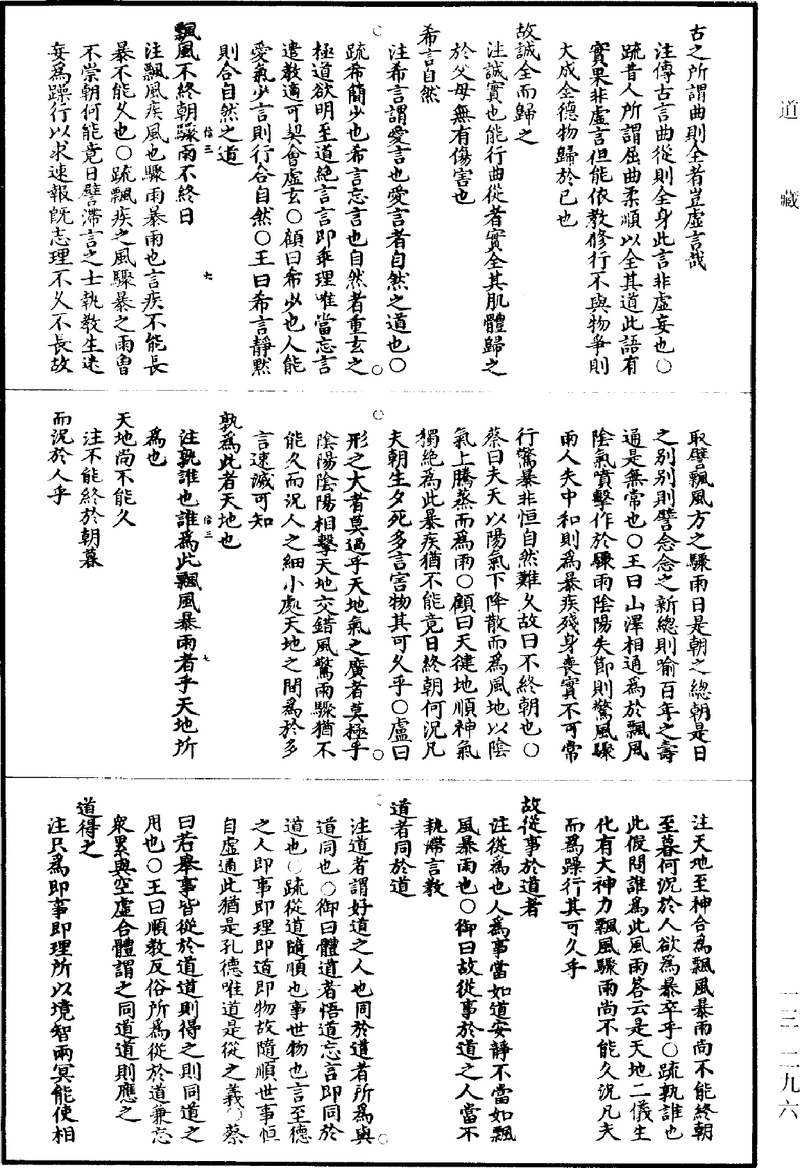 道藏
一三—二九六
古之所謂曲則全者豈虛言哉
注傳古言曲從則全身此言非虛妄也○
疏昔人所謂屈曲柔順以全其道此語有
實果非虛言但能依教修行不與物爭則
大成全德物歸於已也
故誠全而歸之
注誠實也能行曲從者實全其肌體歸之
於父母無有傷害也
希言自然
注希言謂愛言也愛言者自然之道也○
疏希簡少也希言忘言也自然者重玄之
極道欲明至道絶言言即乖理唯當忘言
遣教適可契會虛玄○顧曰希少也人能
愛氣少言則行合自然○王曰希言靜默
則合自然之道
飄風不終朝驟雨不終日
注飄風疾風也驟雨暴雨也言疾不能長
暴不能久也○疏飄疾之風驟暴之雨曾
不崇朝何能竟日譬滯言之士執教生迷
妄為躁行以求速報既志理不久不長故
取譬飄風方之驟雨日是朝之總朝是日
之別別則譬念念之新總則喻百年之壽
通是無常也○王曰山澤相通為於飄風
陰氣賁擊作於驟雨陰陽失節則驚風驟
雨人夫中和則為暴疾殘身喪實不可常
行驚暴非恒自然難久故曰不終朝也○
蔡曰夫天以陽氣下降散而為風地以陰
氣上騰蒸而為雨○顧曰天徤地順神氣
獨絶為此暴疾猶不能竟日終朝何況凡
夫朝生夕死多言害物其可久乎○盧曰
形之大者莫過乎天地氣之廣者莫極乎
陰陽陰陽相擊天地交錯風驚雨驟猶不
能久而況人之細小處天地之間為於多
言速滅可知
孰為此者天地也
注孰誰也誰為此飄風暴雨者乎天地所
為也
天地尚不能久
注不能終於朝暮
而況於人乎
注天地至神合為飄風暴雨尚不能終朝
至暮何況於人欲為暴卒乎○疏孰誰也
此假問誰為此風雨答云是天地二儀生
化有大神力飄風驟雨尚不能久況凡夫
而為躁行其可久乎
故從事於道者
注從為也人為事當如道安靜不當如飄
風暴雨也○御曰故從事於道之人當不
執滯言教
道者同於道
注道者謂好道之人也同於道者所為與
道同也○御曰體道者悟道忘言即同於
道也○疏從道隨順也事世物也言至德
之人即事即理即道即物故隨順世事恒
自虛通此猶是孔德唯道是從之義○蔡
曰若舉事皆從於道道則得之則同道之
用也○王曰順教反俗所為從於道兼忘
衆累與空虛合體謂之同道道則應之
道得之
注只為即事即理所以境智兩冥能使相